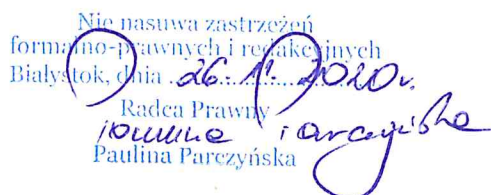 Nie nasuwa zastrzeżeń
formalno-prawnych i redakcyjnych
Białystok, dnia 26.11.2020r.
Radca Prawny
Paulina Parczyńska